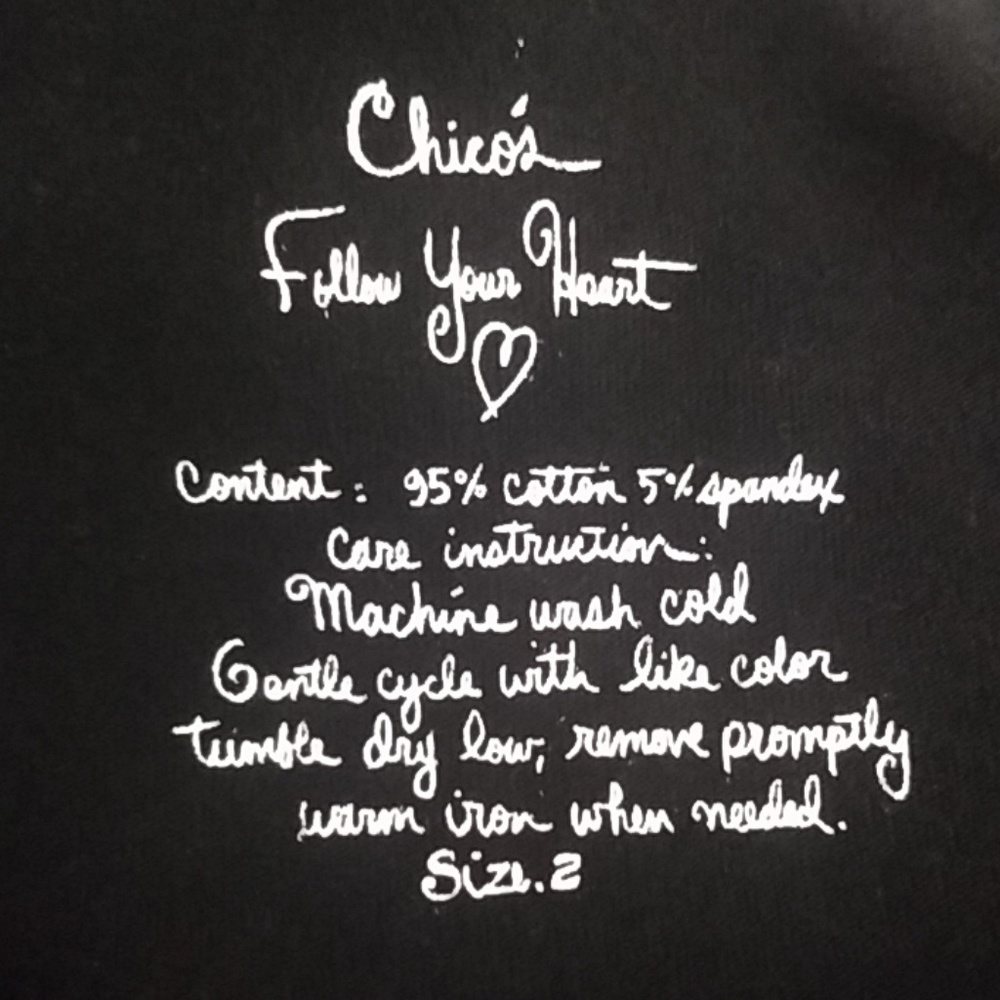 Chico's
Follow Your Heart
Content: 95% cotton 5% spandex
Care instruction:
Machine wash cold
Gentle cycle with like color
tumble dry low, remove promptly
warm iron when needed.
Size.2